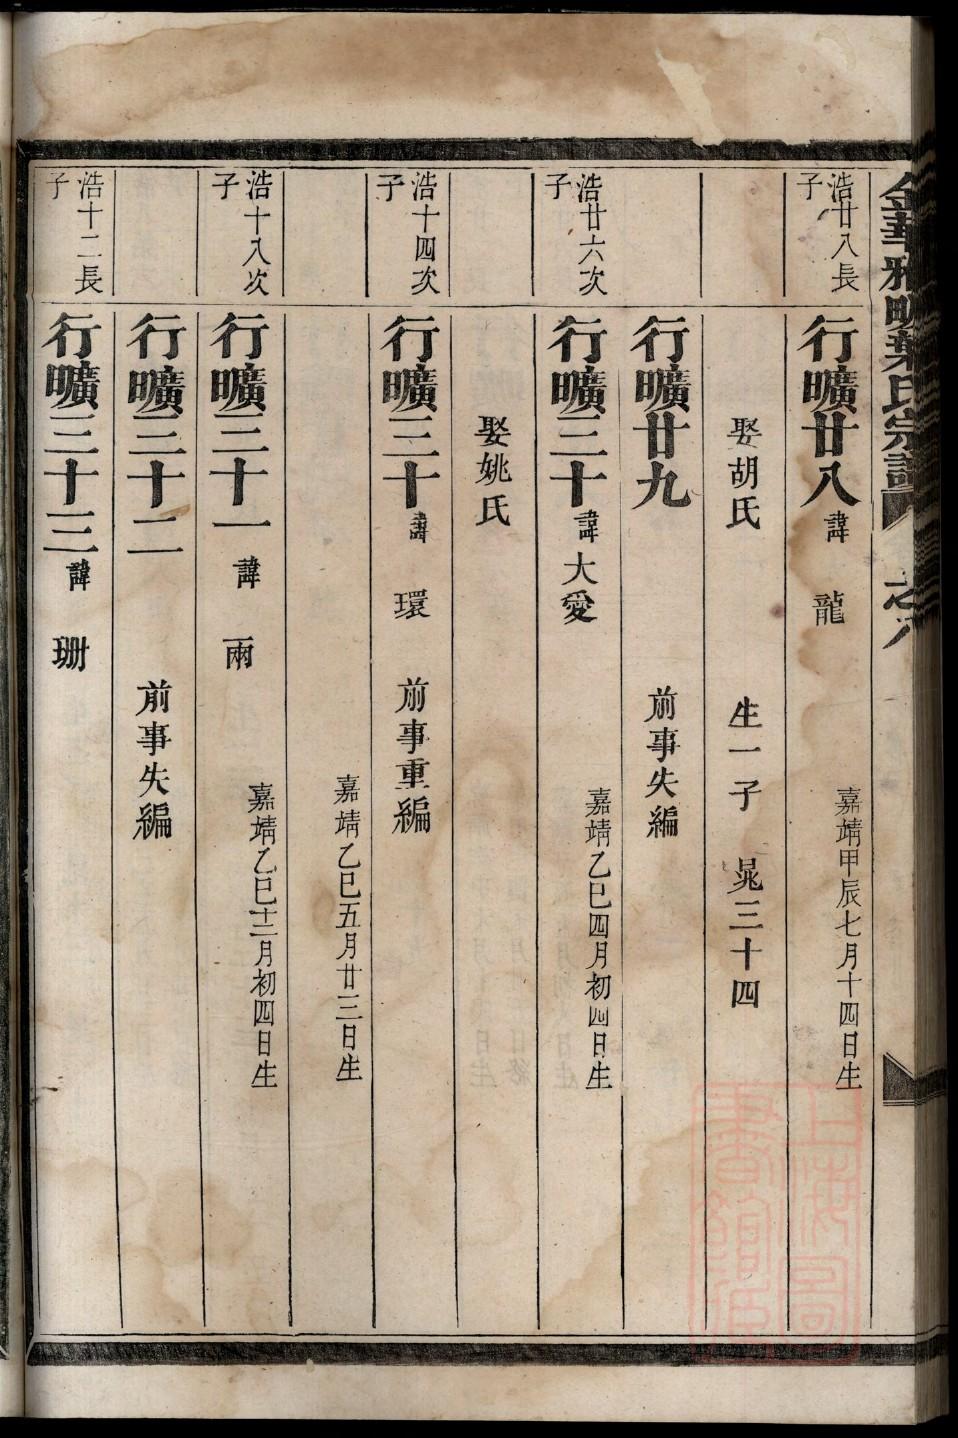 金華雅畈葉氏宗譜
之八
浩廿八長子
行曠廿八 諱 龍 嘉靖甲辰七月十四日生
娶胡氏 生一子 晁三十四
行曠廿九 前事失編
浩廿六次子
行曠三十 諱大愛 嘉靖乙巳四月初四日生
娶姚氏
浩十四次子
行曠三十 諱 環 前事重編
嘉靖乙巳五月廿三日生
浩十八次子
行曠三十一 諱 雨 嘉靖乙巳十二月初四日生
行曠三十二 前事失編
浩十二長子
行曠三十三 諱 珊
上海圖書館藏